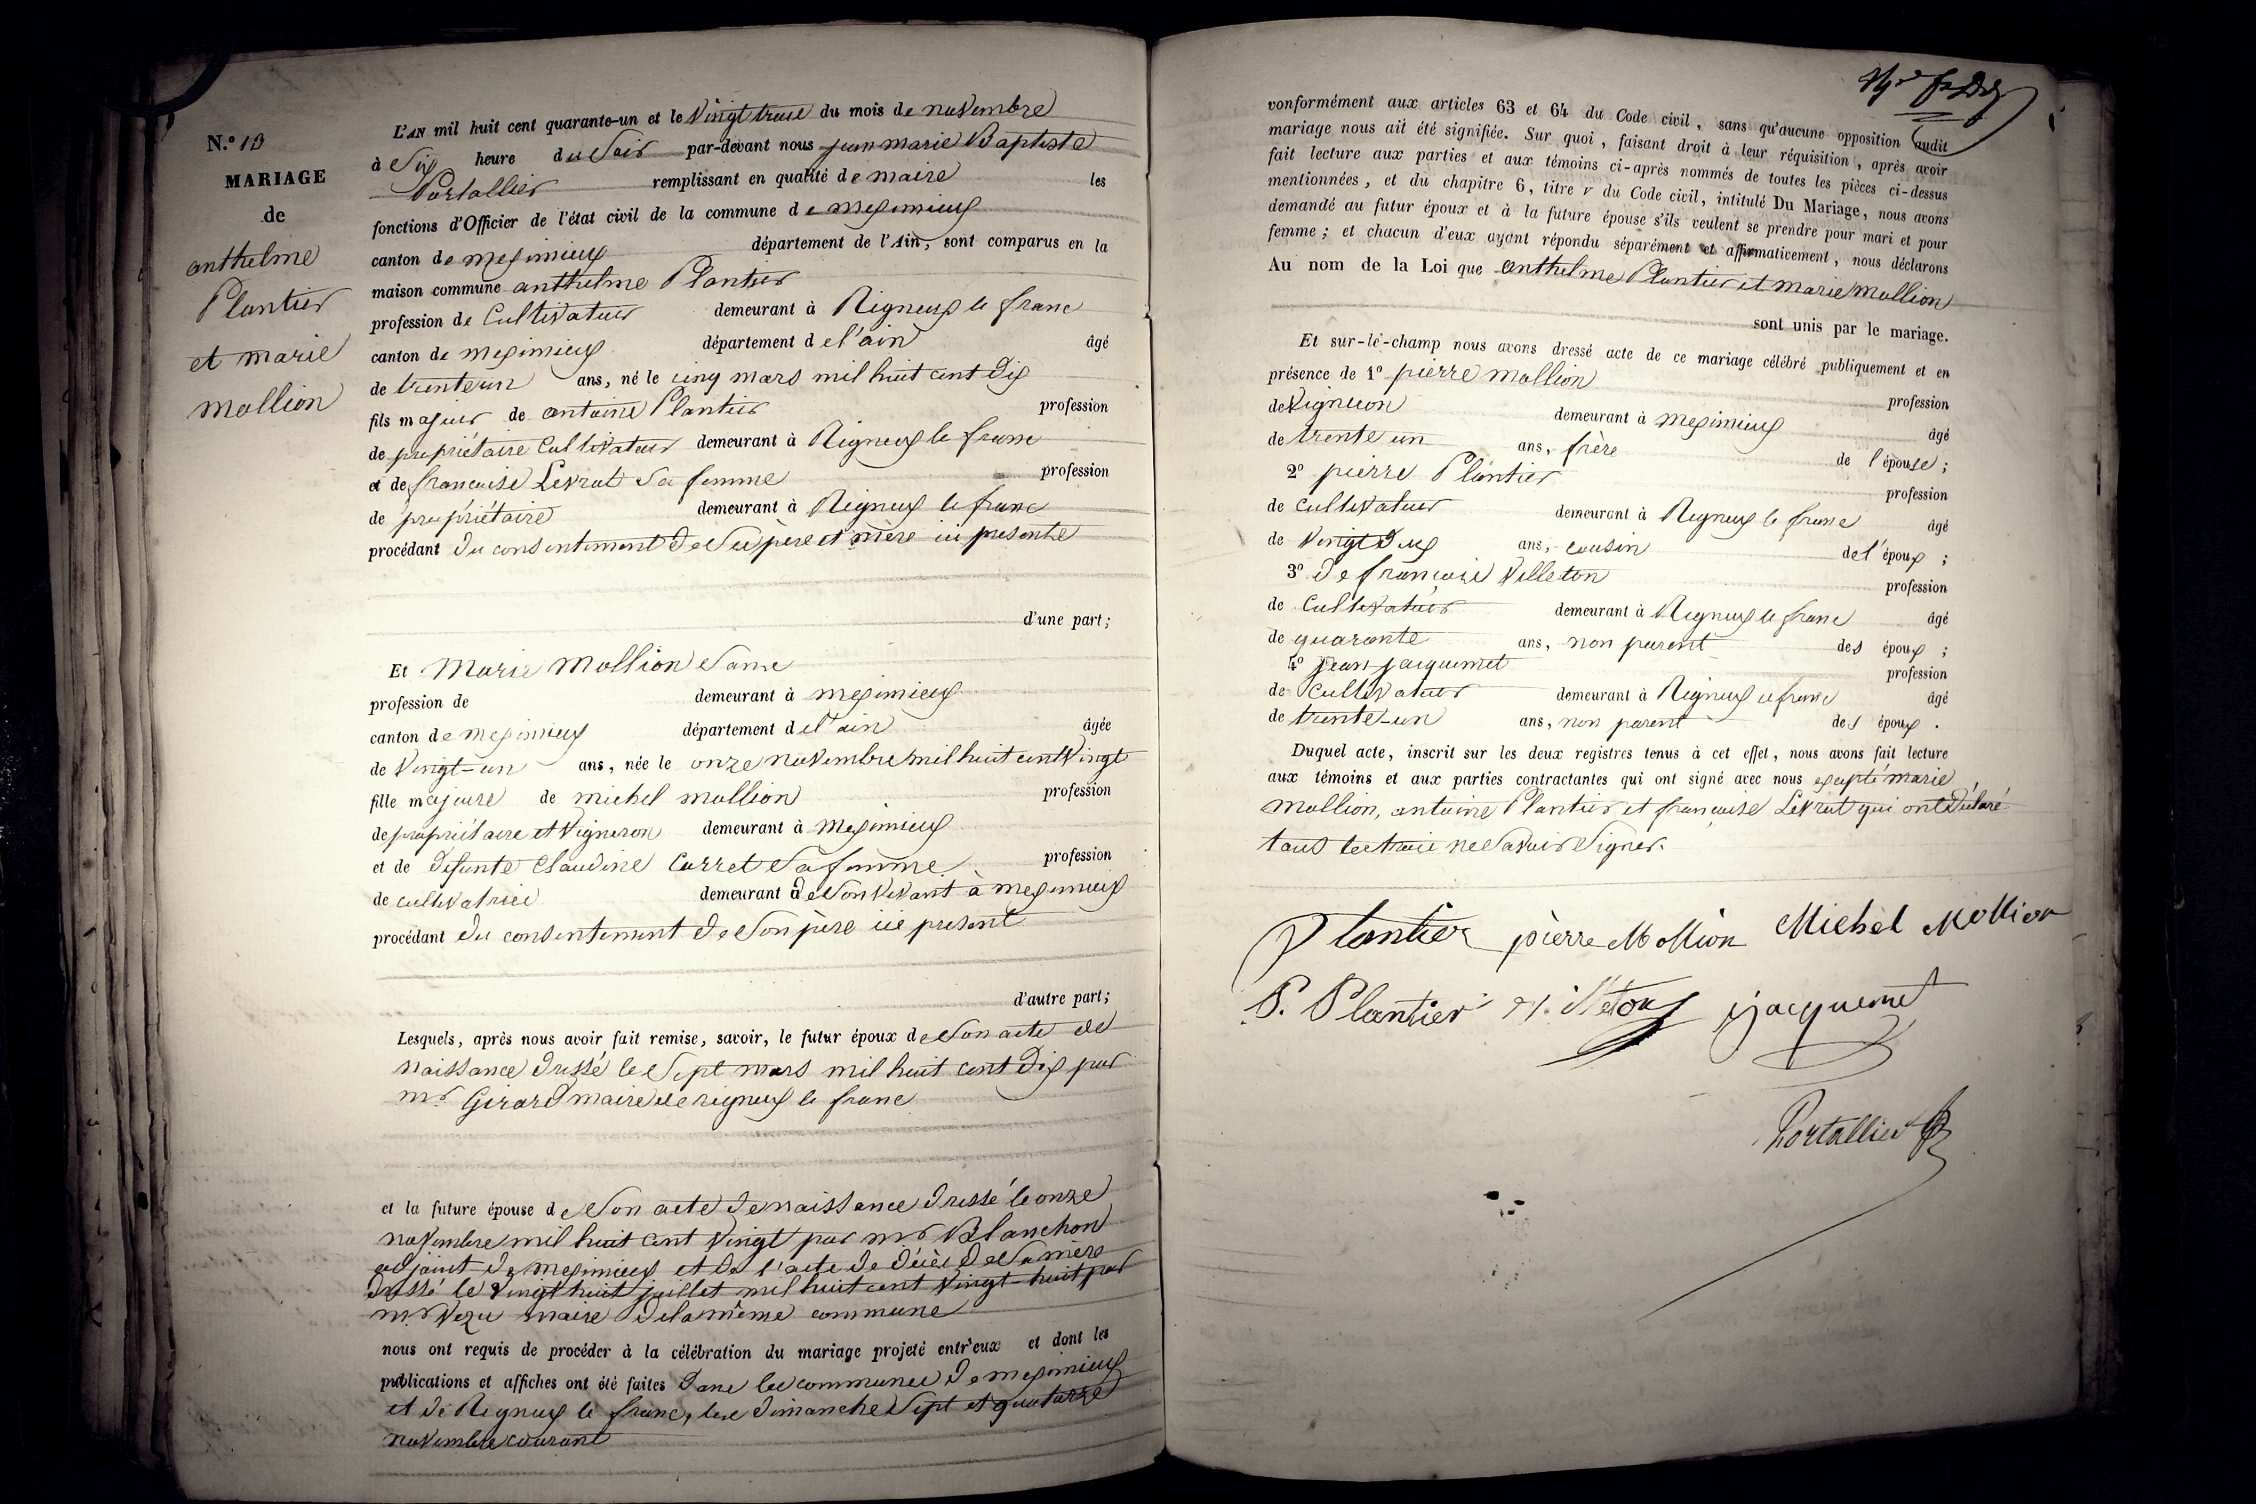 N.° 13
MARIAGE
de
anthelme
Plantier
et marie
mollion
L'AN mil huit cent quarante-un et le Vingt trois du mois de novembre
à Six heure du Soir par-devant nous jean marie Baptiste
Portallier remplissant en qualité de maire les
fonctions d'Officier de l'état civil de la commune de meximieux
canton de meximieux département de l'Ain, sont comparus en la
maison commune anthelme Plantier
profession de Cultivateur demeurant à Rigneux le franc
canton de meximieux département de l'ain âgé
de trente un ans, né le cinq mars mil huit cent dix
fils majeur de antoine Plantier profession
de propriétaire Cultivateur demeurant à Rigneux le franc
et de francoise Levrat Sa femme profession
de propriétaire demeurant à Rigneux le franc
procédant du consentement de Ses père et mère ici presents
d'une part;
Et Marie Mollion Sans
profession de demeurant à meximieux
canton de meximieux département de l'ain âgée
de Vingt-un ans, née le onze novembre mil huit cent Vingt
fille majeure de michel mollion profession
de propriétaire et Vigneron demeurant à Meximieux
et de defunte Claudine Carret Sa femme profession
de cultivatrice demeurant de Son Vivant à meximieux
procédant du consentement de Son père ici present
d'autre part;
Lesquels, après nous avoir fait remise, savoir, le futur époux de Son acte de
naissance dressé le Sept mars mil huit cent dix par
mr Girard maire de rigneux le franc
et la future épouse de Son acte de naissance dressé le onze
novembre mil huit cent Vingt par mr Blanchon
adjoint de meximieux et de l'acte de décès de Sa mère
dressé le Vingt huit juillet mil huit cent Vingt-huit par
mr Vezu maire de la même commune
nous ont requis de procéder à la célébration du mariage projeté entr'eux et dont les
publications et affiches ont été faites dans les communes de meximieux
et de Rigneux le franc, les dimanche Sept et quatorze
novembre courant
conformément aux articles 63 et 64 du Code civil, sans qu'aucune opposition audit
mariage nous ait été signifiée. Sur quoi, faisant droit à leur réquisition, après avoir
fait lecture aux parties et aux témoins ci-après nommés de toutes les pièces ci-dessus
mentionnées, et du chapitre 6, titre V du Code civil, intitulé Du Mariage, nous avons
demandé au futur époux et à la future épouse s'ils veulent se prendre pour mari et pour
femme; et chacun d'eux ayant répondu séparément et affirmativement, nous déclarons
Au nom de la Loi que anthelme Plantier et marie mollion
sont unis par le mariage.
Et sur-le-champ nous avons dressé acte de ce mariage célébré publiquement et en
présence de 1° pierre mollion profession
de Vigneron demeurant à meximieux âgé
de trente un ans, frère de l'épouse;
2° pierre Plantier profession
de cultivateur demeurant à Rigneux le franc âgé
de Vingt deux ans, cousin de l'époux;
3° de francoise Villeton profession
de Cultivateur demeurant à Rigneux le franc âgé
de quarante ans, non parent des époux;
4° jean jacquemet profession
de Cultivateur demeurant à Rigneux le franc âgé
de trente-un ans, non parent des époux.
Duquel acte, inscrit sur les deux registres tenus à cet effet, nous avons fait lecture
aux témoins et aux parties contractantes qui ont signé avec nous excepté marie
mollion, antoine Plantier et francoise Levrat qui ont déclaré
tous les trois ne Savoir Signer.
Plantier pierre Mollion Michel Mollion
P. Plantier jacquemet
Portallier